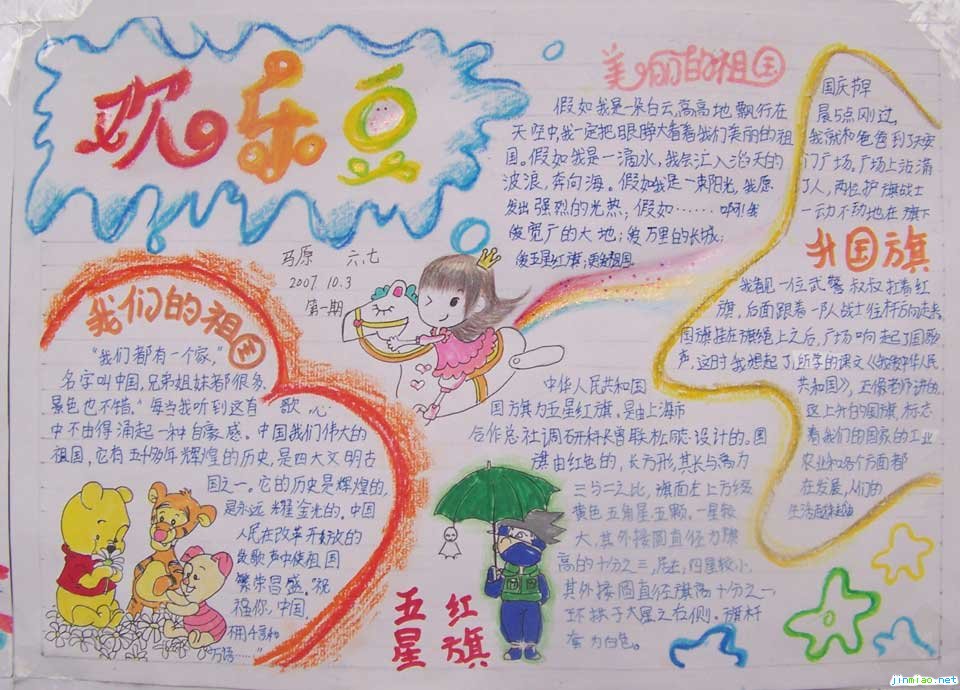 欢乐豆
马原 六.七
2007.10.3
第一期
美丽的祖国
假如我是一朵白云,高高地飘行在
天空中,我一定把眼睁大看着我们美丽的祖
国。假如我是一滴水,我会汇入滔天的
波浪,奔向海。假如我是一束阳光,我愿
发出强烈的光热;假如……啊!我
爱宽广的大地;爱万里的长城;
爱五星红旗;更爱祖国.
国庆节早
晨5点刚过,
我就和爸爸到了天安
门广场。广场上站满
了人,两位护旗战士
一动不动地在旗下
升国旗
我看见一位武警叔叔扛着红
旗,后面跟着一队战士往杆方向走来.
国旗挂在旗绳上之后,广场响起了国歌
声,这时我想起了所学的课文
共和国》,
这上升的国旗,标志
着我们的国家的工业
农业和各个方面都
在发展,人们的
生活越来越
我们的祖国
“我们都有一个家,”
名字叫中国,兄弟姐妹都很多,
景色也不错.“每当我听到这首歌,心
中不由得涌起一种自豪感。中国我们伟大的
祖国,它有五千多年辉煌的历史,是四大文明古
国之一。它的历史是辉煌的,
是永远耀金光的。中国
人民在改革开放的
歌声中使祖国
繁荣昌盛。祝
福你,中国.
万语……”
中华人民共和国
国旗为五星红旗,是由上海市
合作总社调研科长曾联松同志设计的。国
旗由红色的,长方形,其长与高为
三与二之比,旗面左上方缀
黄色五角星五颗。一星较
大,其外接圆直径为旗
高的十分之三,居左,四星较小.
其外接圆直径旗高十分之一,
环拱于大星之右侧。旗杆
套为白色。
五星红旗
jinmiao.net